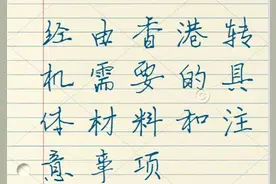 经由香港转
机需要的具
体材料和注
意事项